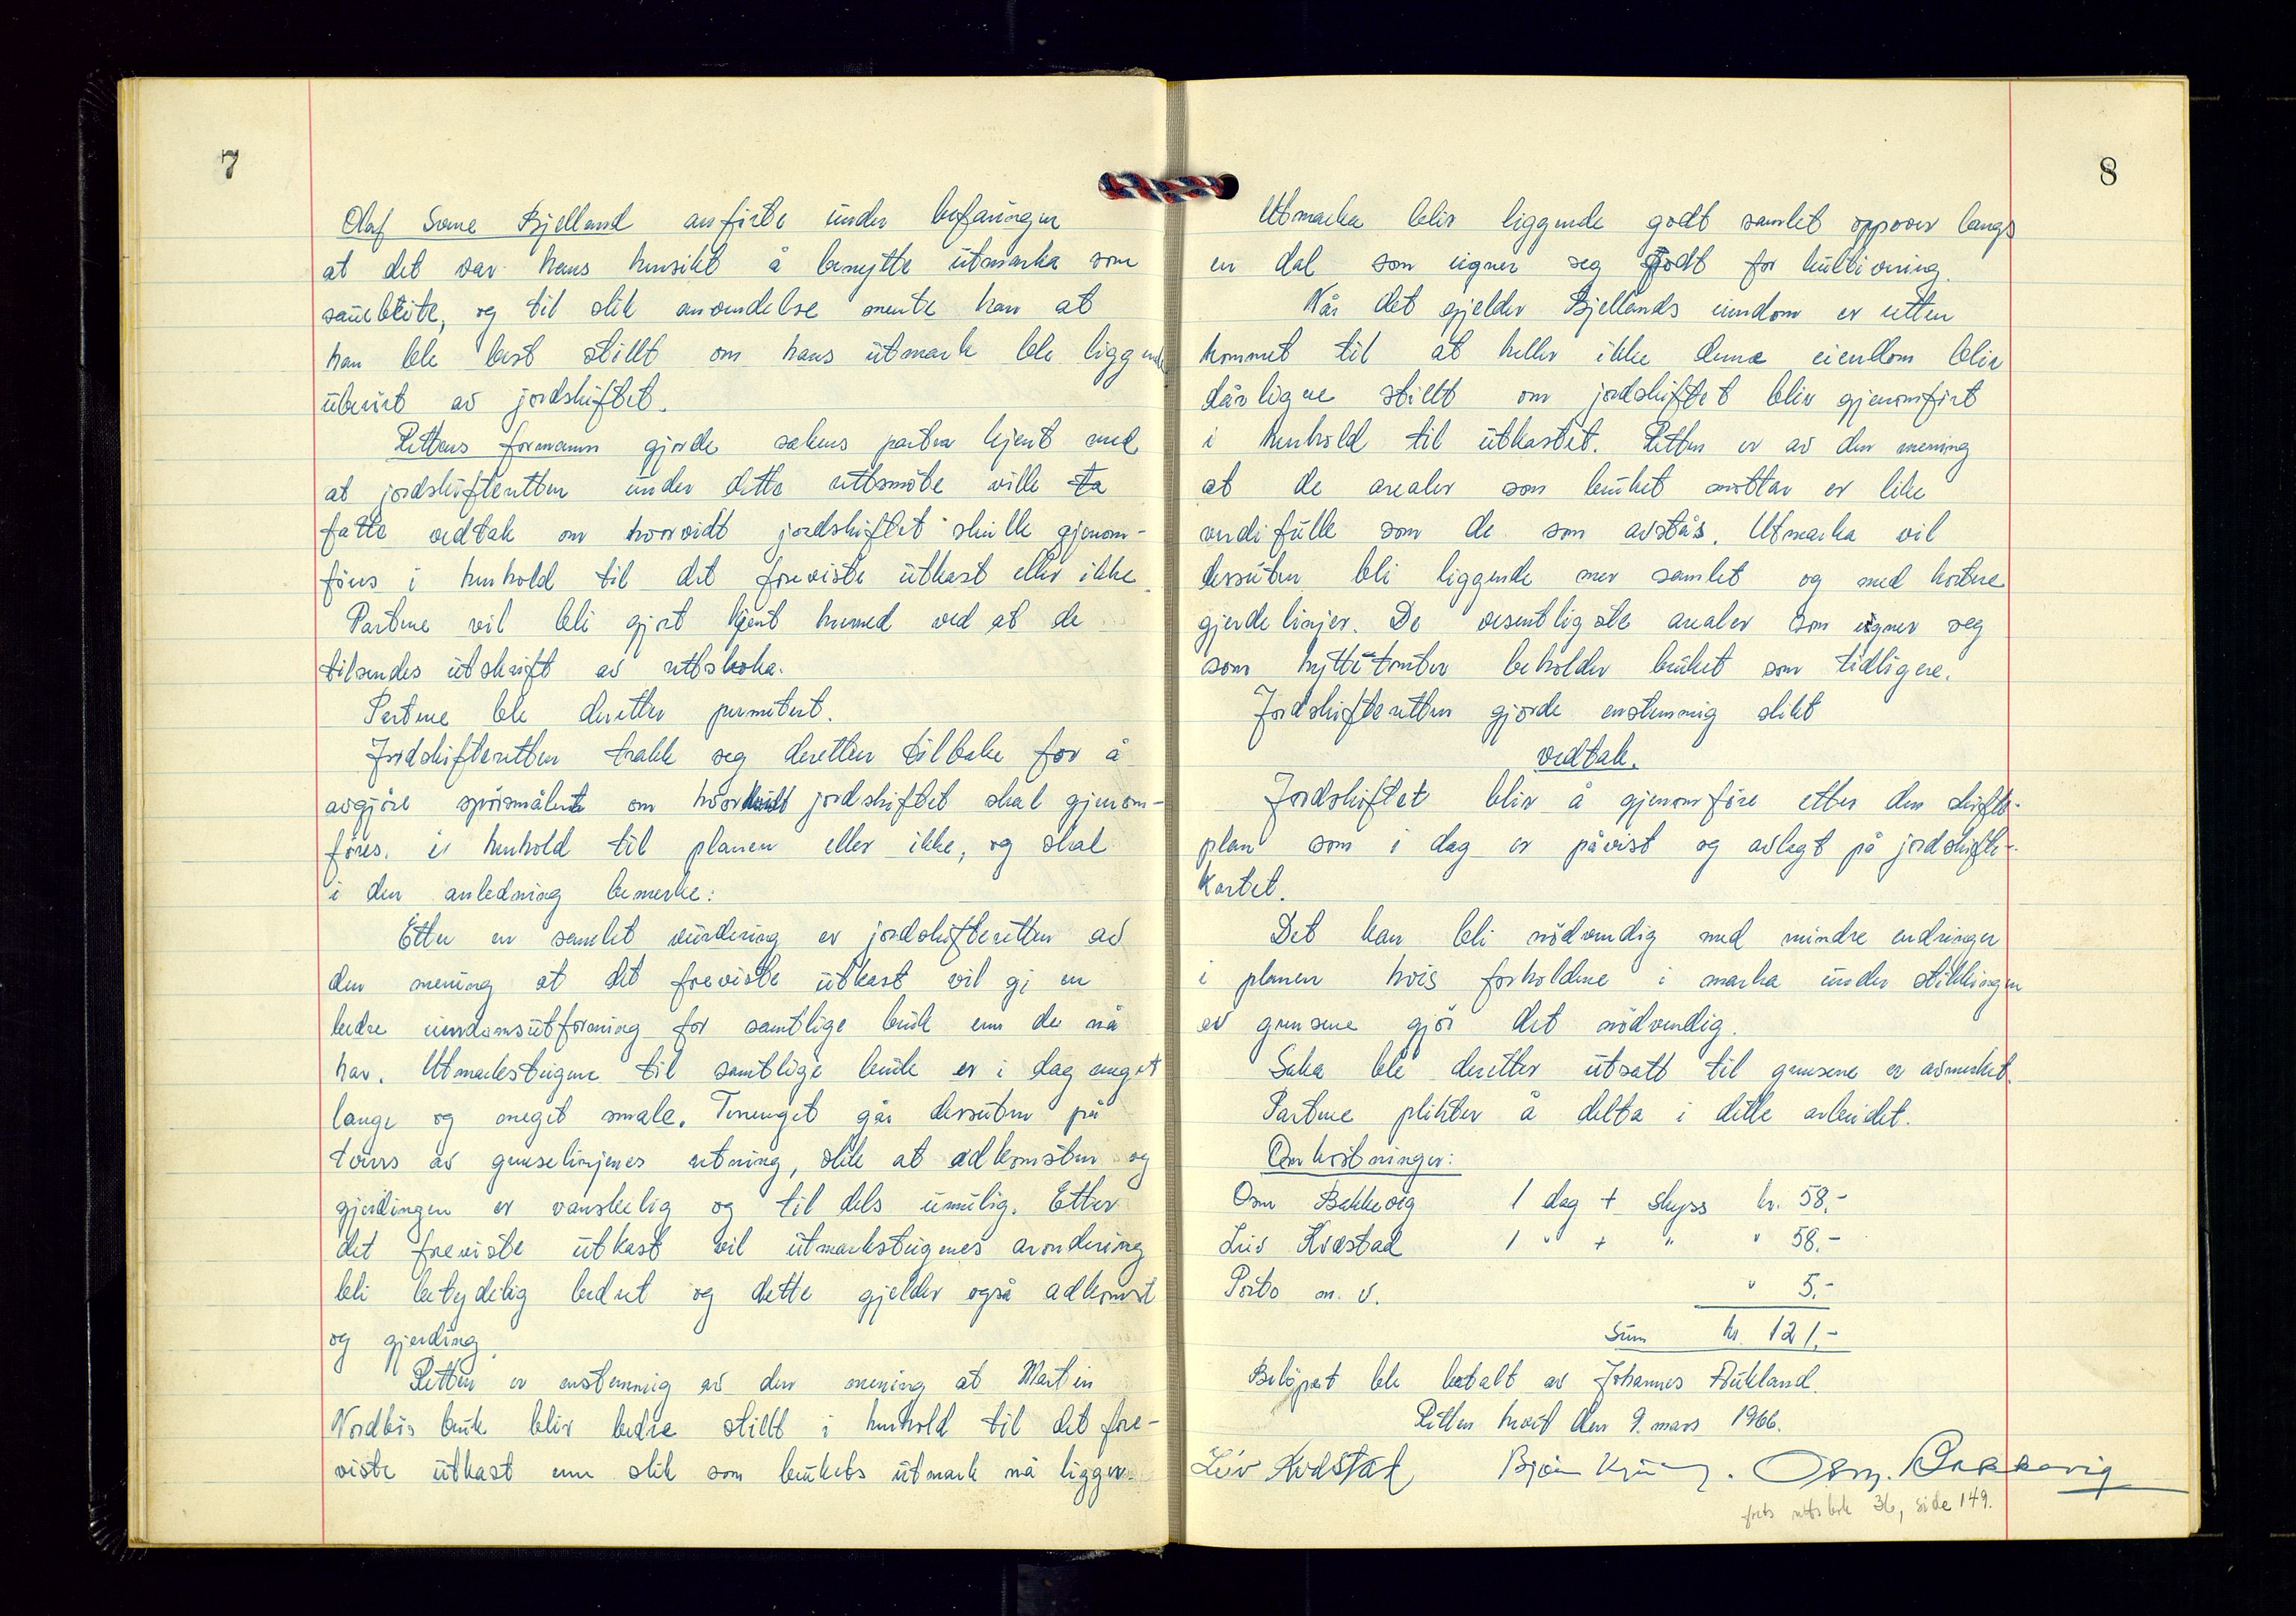 7
Olaf Sone Bjelland anførte under befaringen
at det var hans hensikt å benytte utmarka som
sauebeite, og til slik anvendelse mente han at
han ble best stillt om hans utmark ble liggende
uberørt av jordskiftet.
Rettens formann gjorde sakens parter kjent med
at jordskifteretten under dette rettsmøte ville ta
fatte vedtak om hvorvidt jordskiftet skulle gjenom-
føres i henhold til det foreviste utkast eller ikke.
Partene vil bli gjort kjent hermed ved at de
tilsendes utskrift av rettsboka.
Partene ble deretter permitert.
Jordskifteretten trakk seg deretter tilbake for å
avgjøre spørsmålet om hvorvidt jordskiftet skal gjenom-
føres i henhold til planen eller ikke, og skal
i den anledning bemerke:
Etter en samlet vurdering er jordskifteretten av
den mening at det foreviste utkast vil gi en
bedre eiendomsutforming for samtlige bruk enn de nå
har. Utmarksteigene til samtlige bruk er i dag meget
lange og meget smale. Terrenget går dessuten på
tvers av grenselinjenes retning, slik at adkomsten og
gjerdingen er vanskelig og til dels umulig. Etter
det foreviste utkast vil utmarksteigenes arondering
bli betydelig bedret og dette gjelder også adkomst
og gjerding.
Retten er enstemmig av den mening at Martin
Nordbøs bruk blir bedre stillt i henhold til det fore-
viste utkast enn slik som brukets utmark nå ligger.
8
Utmarka blir liggende godt samlet oppover langs
en dal som eigner seg godt for kultivering.
Når det gjelder Bjellands eiendom er retten
kommet til at heller ikke denne eiendom blir
dårligere stillt om jordskiftet blir gjenomført
i henhold til utkastet. Retten er av den mening
at de arealer som bruket mottar er like
verdifulle som de som avstås. Utmarka vil
dessuten bli liggende mer samlet og med kortere
gjerdelinjer. De vesentligste arealer som eigner seg
som hyttetomter beholder bruket som tidligere.
Jordskifteretten gjorde enstemmig slikt
vedtak.
Jordskiftet blir å gjenomføre etter den skifte-
plan som i dag er påvist og avlagt på jordskifte-
kartet.
Det kan bli nødvendig med mindre endringer
i planen hvis forholdene i marka under stikkingen
av grensene gjør det nødvendig.
Saka ble deretter utsatt til grensene er avmerket.
Partene plikter å delta i dette arbeidet.
Omkostninger:
Osm Bakkevig 1 dag + skyss kr. 58.-
Leiv Kvæstad 1 " + " " 58.-
Porto m. v. " 5.-
Sum kr. 121.-
Beløpet ble betalt av Johannes Aukland.
Retten hevet den 9. mars 1966.
Leiv Kvæstad Bjørn Osm. Bakkevig
forts rettsbok 36, side 149.